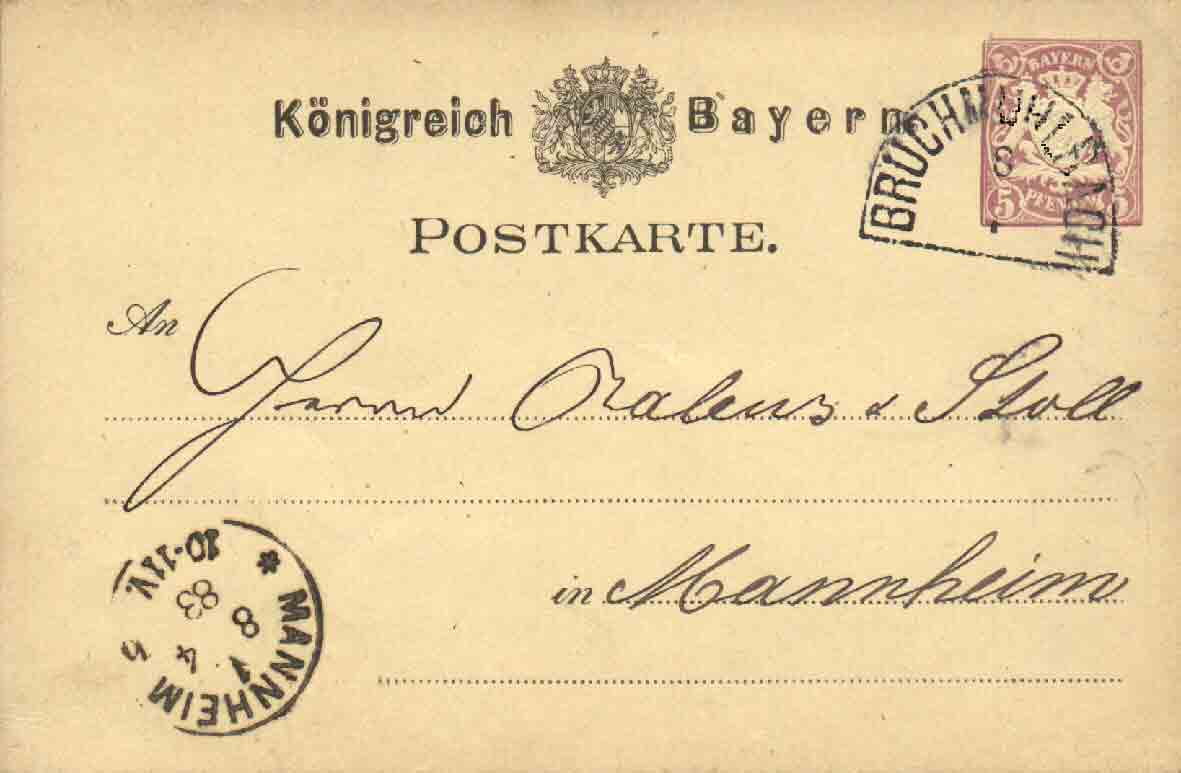 BAYERN
Königreich Bayern
BRUCHMÜHLBACH
8
5 PFENNIG 5
POSTKARTE.
An
Herrn & Stoll
in Mannheim
* MANNHEIM
8 4
83
10-11V.